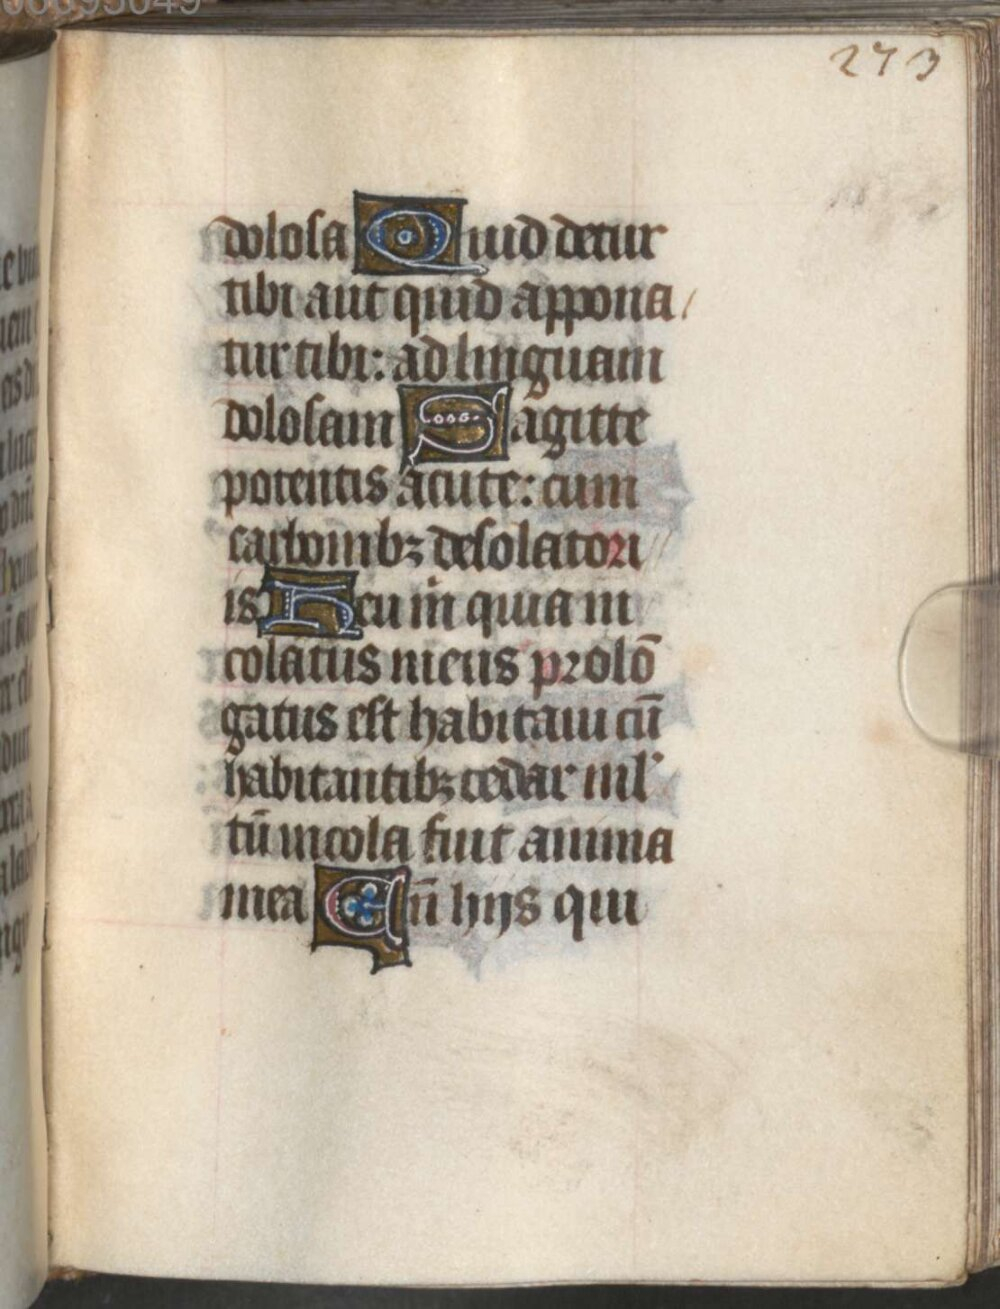 273
dolosa Quid detur
tibi aut quid appona/
tur tibi: ad linguam
dolosam Sagitte
potentis acute: cum
carbonibꝫ desolatori//
is Heu m̄ quia in
colatus meus prolō
gatus est habitaui cū
habitantibꝫ cedar ml'
tū incola fuit anima
mea Cū hijs qui